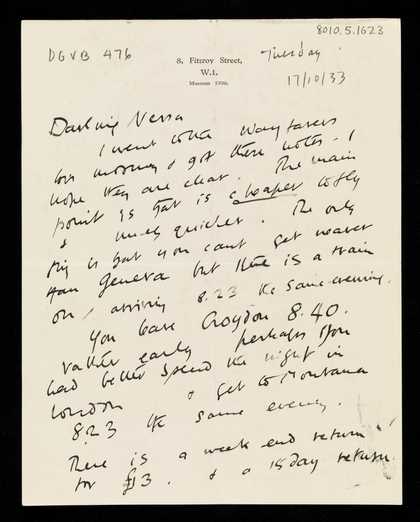 8010.5.1623
DGVB 476
8, Fitzroy Street,
W.1.
Museum
Tuesday
17/10/33
Darling Nessa
I went to the Wayfarers
this morning & got these notes. I
hope they are clear. The main
point is that is cheaper to fly
& much quicker. The only
thing is that you cant get nearer
than Geneva but there is a train
on, arriving 8.23 the same evening.
You leave Croydon 8.40.
rather early perhaps you
had better spend the night in
London & get to Montana
8.23 the same evening.
There is a week end return
for £13. & a 15 day return.